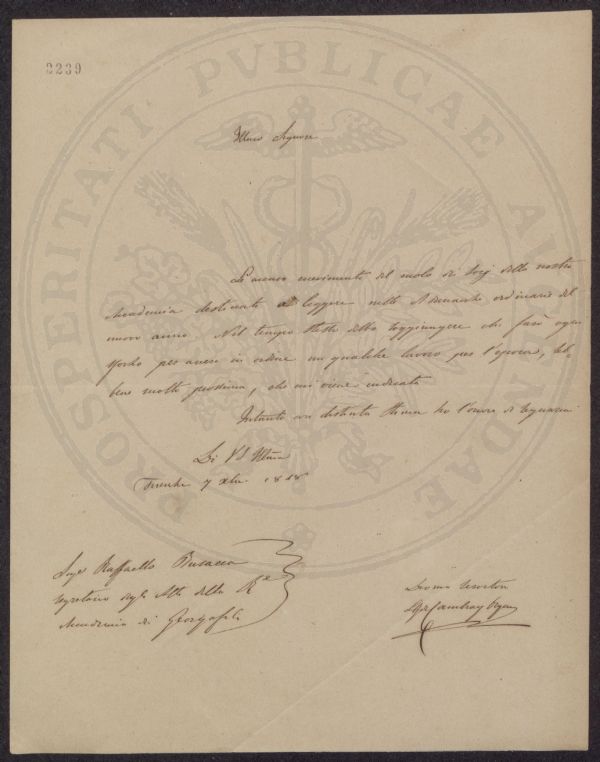 2239
PROSPERITATI PVBLICAE AVGENDAE
Illmo Signore
Le accuso ricevimento del ruolo di Socj della nostra
Accademia destinati a leggere nelle Adunanze ordinarie del
nuovo anno. Nel tempo stesso debbo soggiungere che farò ogni
sforzo per avere in ordine un qualche lavoro per l'epoca, seb=
bene molto prossima, che mi viene indicata
Intanto con distinta stima ho l'onore di segnarmi
Di VS Illma
Firenze 7 Xbre 1858
Sigr Raffaello Busacca
Segretario degli Atti della Re
Accademia dei Georgofili
Devmo Servitore
Cambray Digny